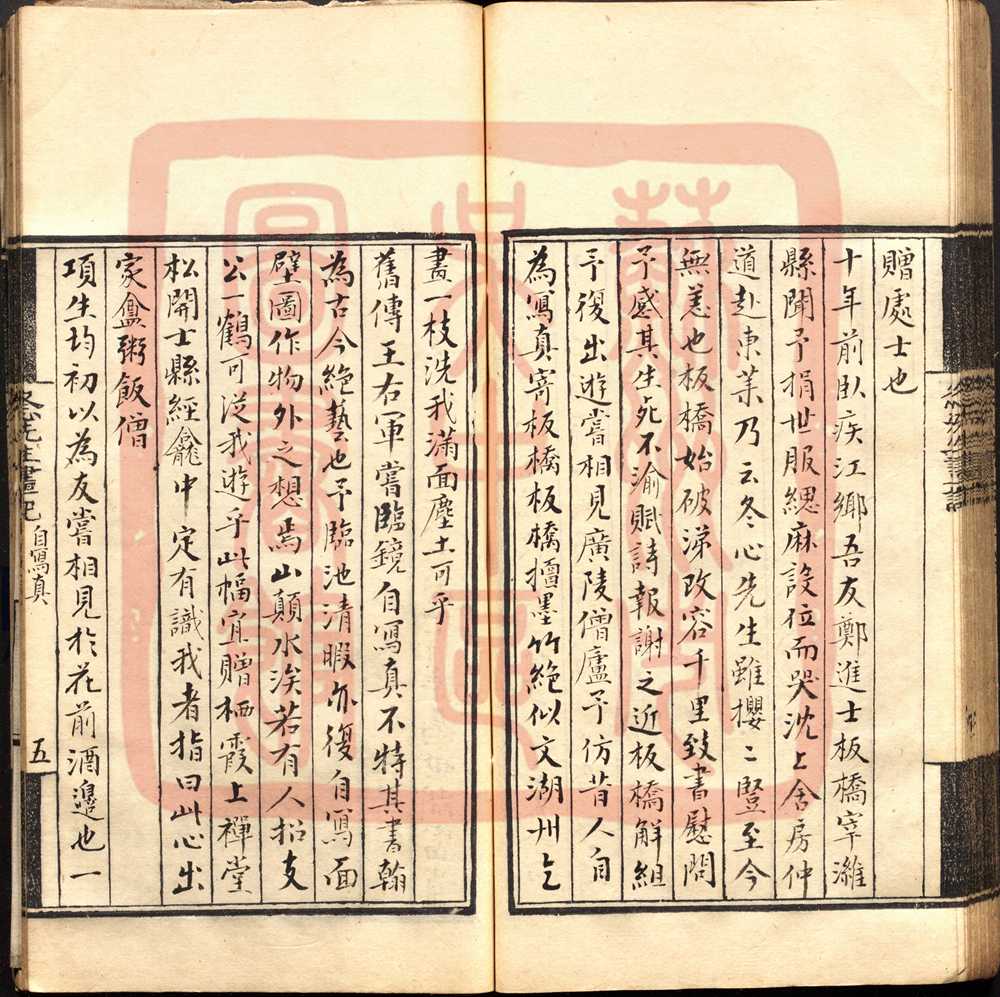 贈處士也
十年前臥疾江鄉吾友鄭進士板橋宰濰
縣聞予捐世服緦麻設位而哭沈上舍房仲
道赴東萊乃云冬心先生雖攖二豎至今
無恙也板橋始破涕改容千里致書慰問
予感其生死不渝賦詩報謝之近板橋解組
予復出遊嘗相見廣陵僧廬予仿昔人自
為寫真寄板橋板橋擅墨竹絕似文湖州乞
畫一枝洗我滿面塵土可乎
舊傳王右軍嘗臨鏡自寫真不特其書翰
為古今絕藝也予臨池清暇亦復自寫面
壁圖作物外之想焉山顛水涘若有人招支
公一鶴可從我遊乎此幅宜贈栖霞上禪堂
松開士縣經龕中定有識我者指曰此心出
家盦粥飯僧
項生均初以為友嘗相見於花前酒邊也一
冬心先生畫記 自寫真 五